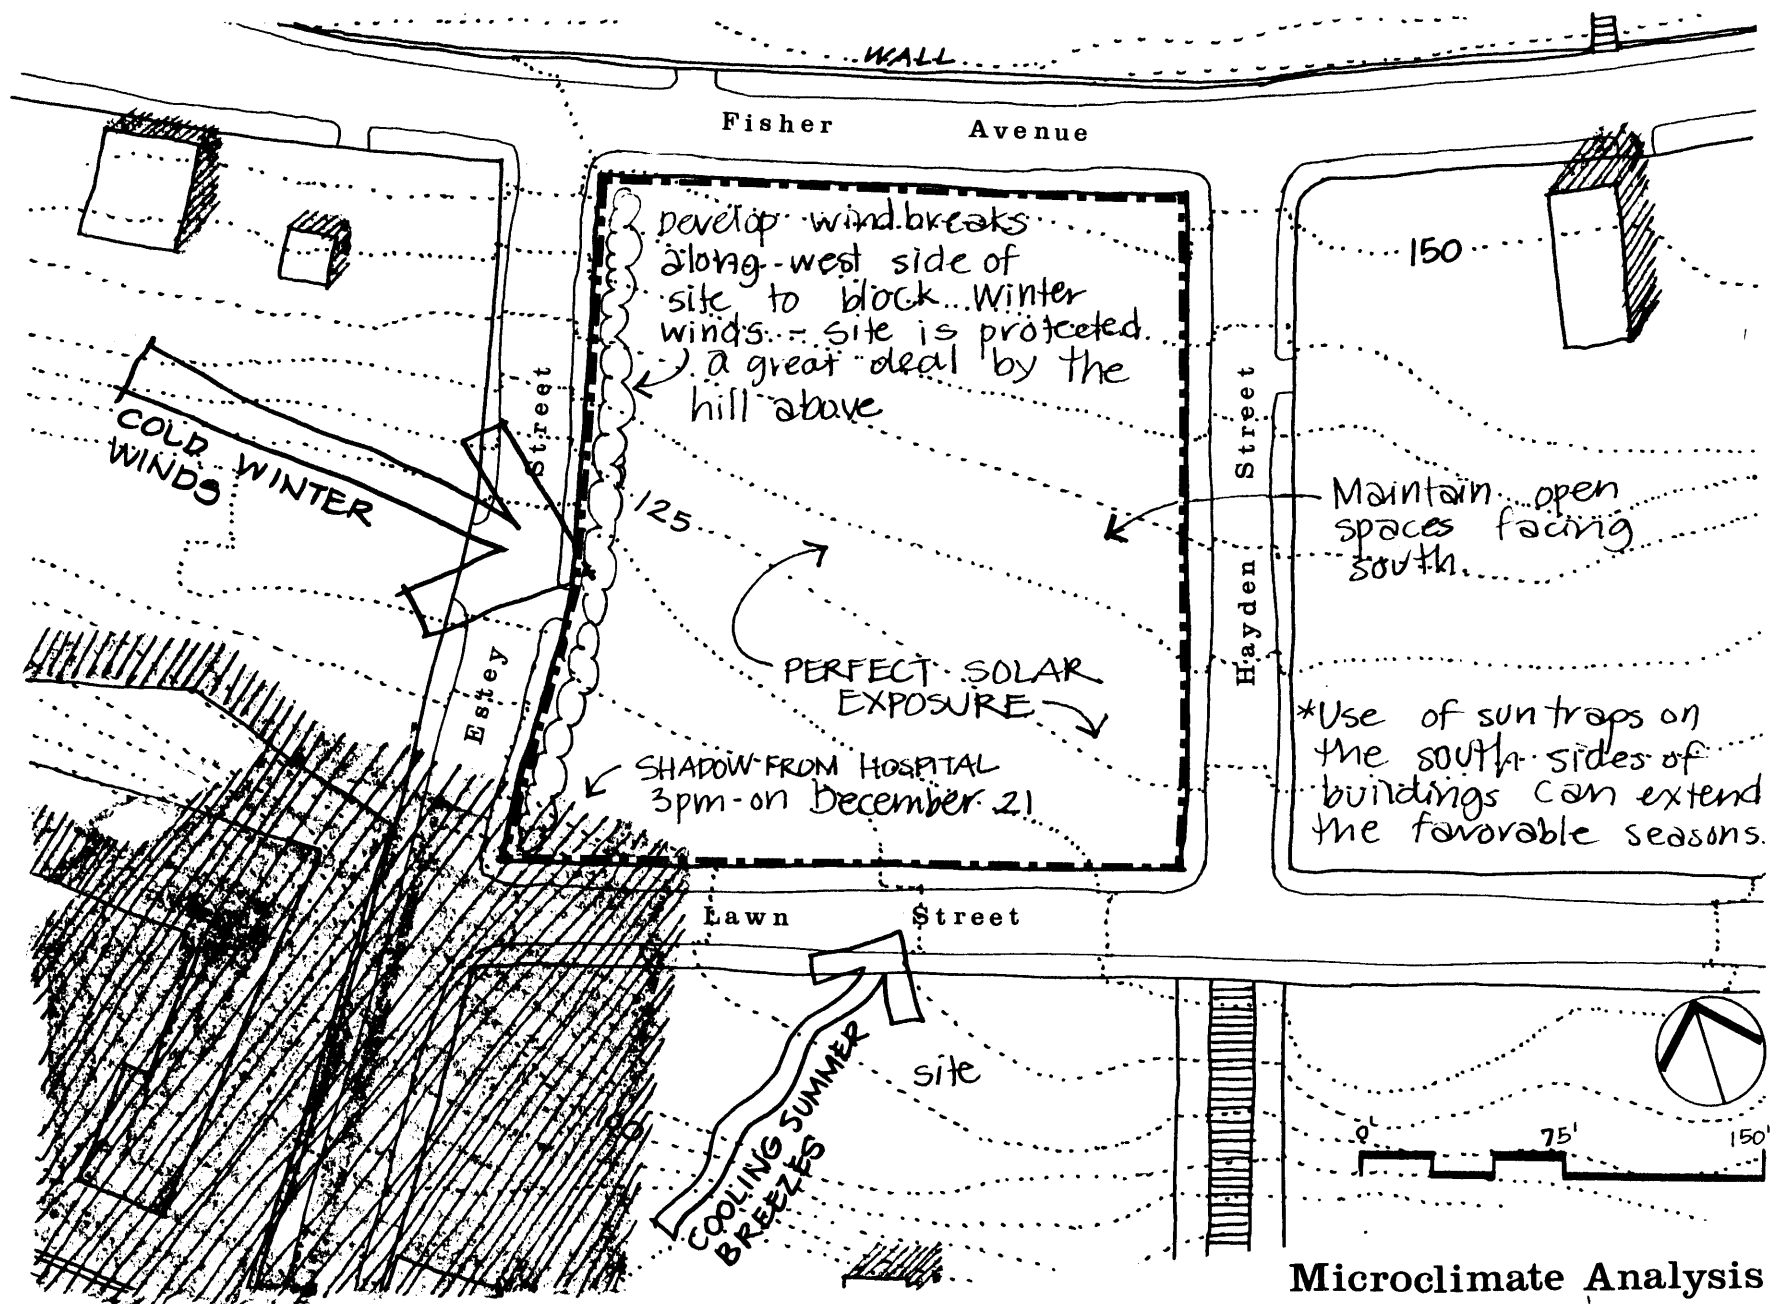 WALL
Fisher Avenue
Develop windbreaks
along west side of
site to block winter
winds - site is protected
a great deal by the
hill above
150
Street
Estey
COLD WINTER
WINDS
125
Street
Hayden
Maintain open
spaces facing
south.
PERFECT SOLAR
EXPOSURE
*Use of sun traps on
the south sides of
buildings can extend
the favorable seasons.
SHADOW FROM HOSPITAL
3pm on December 21
Lawn Street
COOLING SUMMER
BREEZES
site
0' 75' 150'
Microclimate Analysis